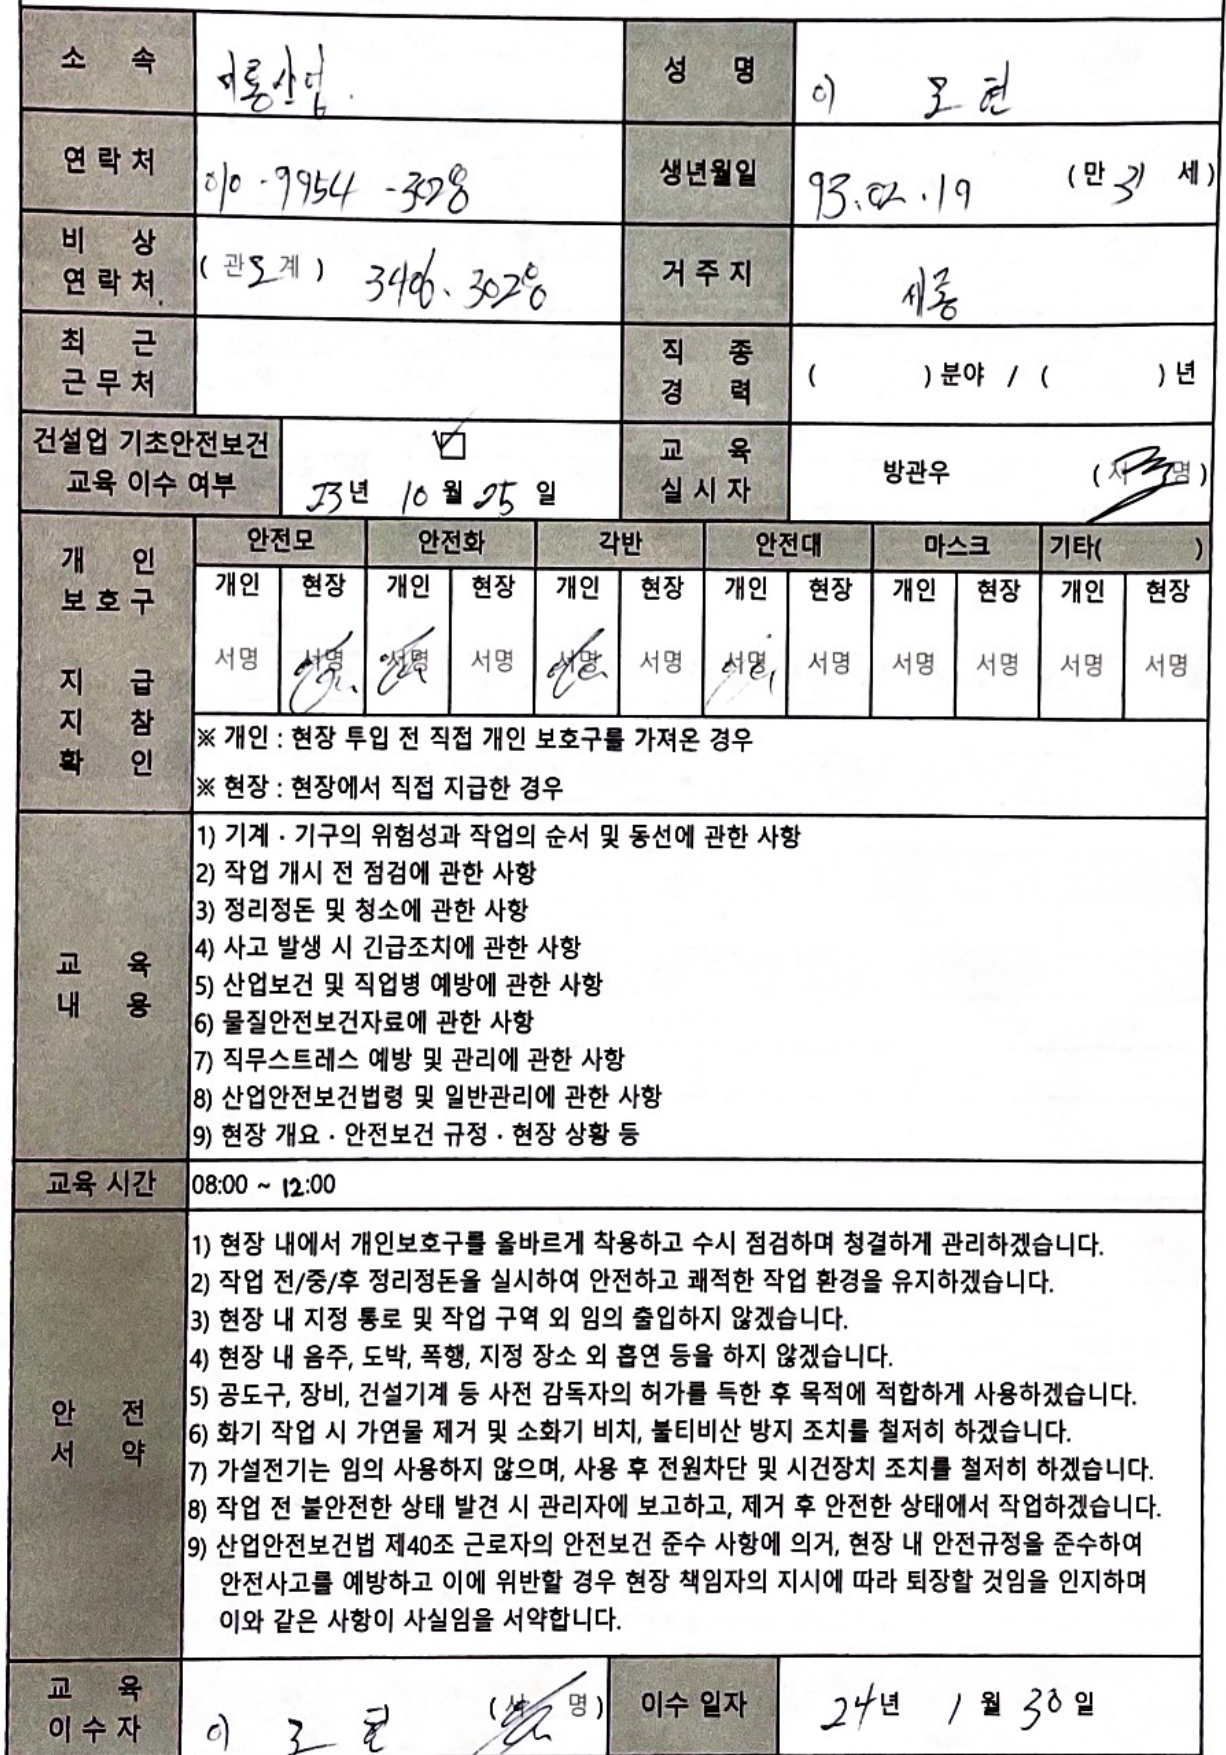 소 속
산업.
성 명
이 모 현
연 락 처
010 - 9954 - 3028
생년월일
93.02.19 (만 31 세)
비 상
연 락 처
(관 모 계) 3496. 3028
거 주 지
세종
최 근
근 무 처
직 종
경 력
( ) 분야 / ( ) 년
건설업 기초안전보건
교육 이수 여부
23년 10월 25일
교 육
실 시 자
방관우 (서 명)
개 인
보 호 구
지 급
지 참
확 인
안전모 안전화 각반 안전대 마스크 기타( )
개인 현장 개인 현장 개인 현장 개인 현장 개인 현장 개인 현장
서명 서명 서명 서명 서명 서명 서명 서명 서명 서명 서명 서명
※ 개인 : 현장 투입 전 직접 개인 보호구를 가져온 경우
※ 현장 : 현장에서 직접 지급한 경우
교 육
내 용
1) 기계 · 기구의 위험성과 작업의 순서 및 동선에 관한 사항
2) 작업 개시 전 점검에 관한 사항
3) 정리정돈 및 청소에 관한 사항
4) 사고 발생 시 긴급조치에 관한 사항
5) 산업보건 및 직업병 예방에 관한 사항
6) 물질안전보건자료에 관한 사항
7) 직무스트레스 예방 및 관리에 관한 사항
8) 산업안전보건법령 및 일반관리에 관한 사항
9) 현장 개요 · 안전보건 규정 · 현장 상황 등
교육 시간
08:00 ~ 12:00
안 전
서 약
1) 현장 내에서 개인보호구를 올바르게 착용하고 수시 점검하며 청결하게 관리하겠습니다.
2) 작업 전/중/후 정리정돈을 실시하여 안전하고 쾌적한 작업 환경을 유지하겠습니다.
3) 현장 내 지정 통로 및 작업 구역 외 임의 출입하지 않겠습니다.
4) 현장 내 음주, 도박, 폭행, 지정 장소 외 흡연 등을 하지 않겠습니다.
5) 공도구, 장비, 건설기계 등 사전 감독자의 허가를 득한 후 목적에 적합하게 사용하겠습니다.
6) 화기 작업 시 가연물 제거 및 소화기 비치, 불티비산 방지 조치를 철저히 하겠습니다.
7) 가설전기는 임의 사용하지 않으며, 사용 후 전원차단 및 시건장치 조치를 철저히 하겠습니다.
8) 작업 전 불안전한 상태 발견 시 관리자에 보고하고, 제거 후 안전한 상태에서 작업하겠습니다.
9) 산업안전보건법 제40조 근로자의 안전보건 준수 사항에 의거, 현장 내 안전규정을 준수하여
안전사고를 예방하고 이에 위반할 경우 현장 책임자의 지시에 따라 퇴장할 것임을 인지하며
이와 같은 사항이 사실임을 서약합니다.
교 육
이 수 자
이 모 현 (서 명)
이수 일자
24년 1월 30일